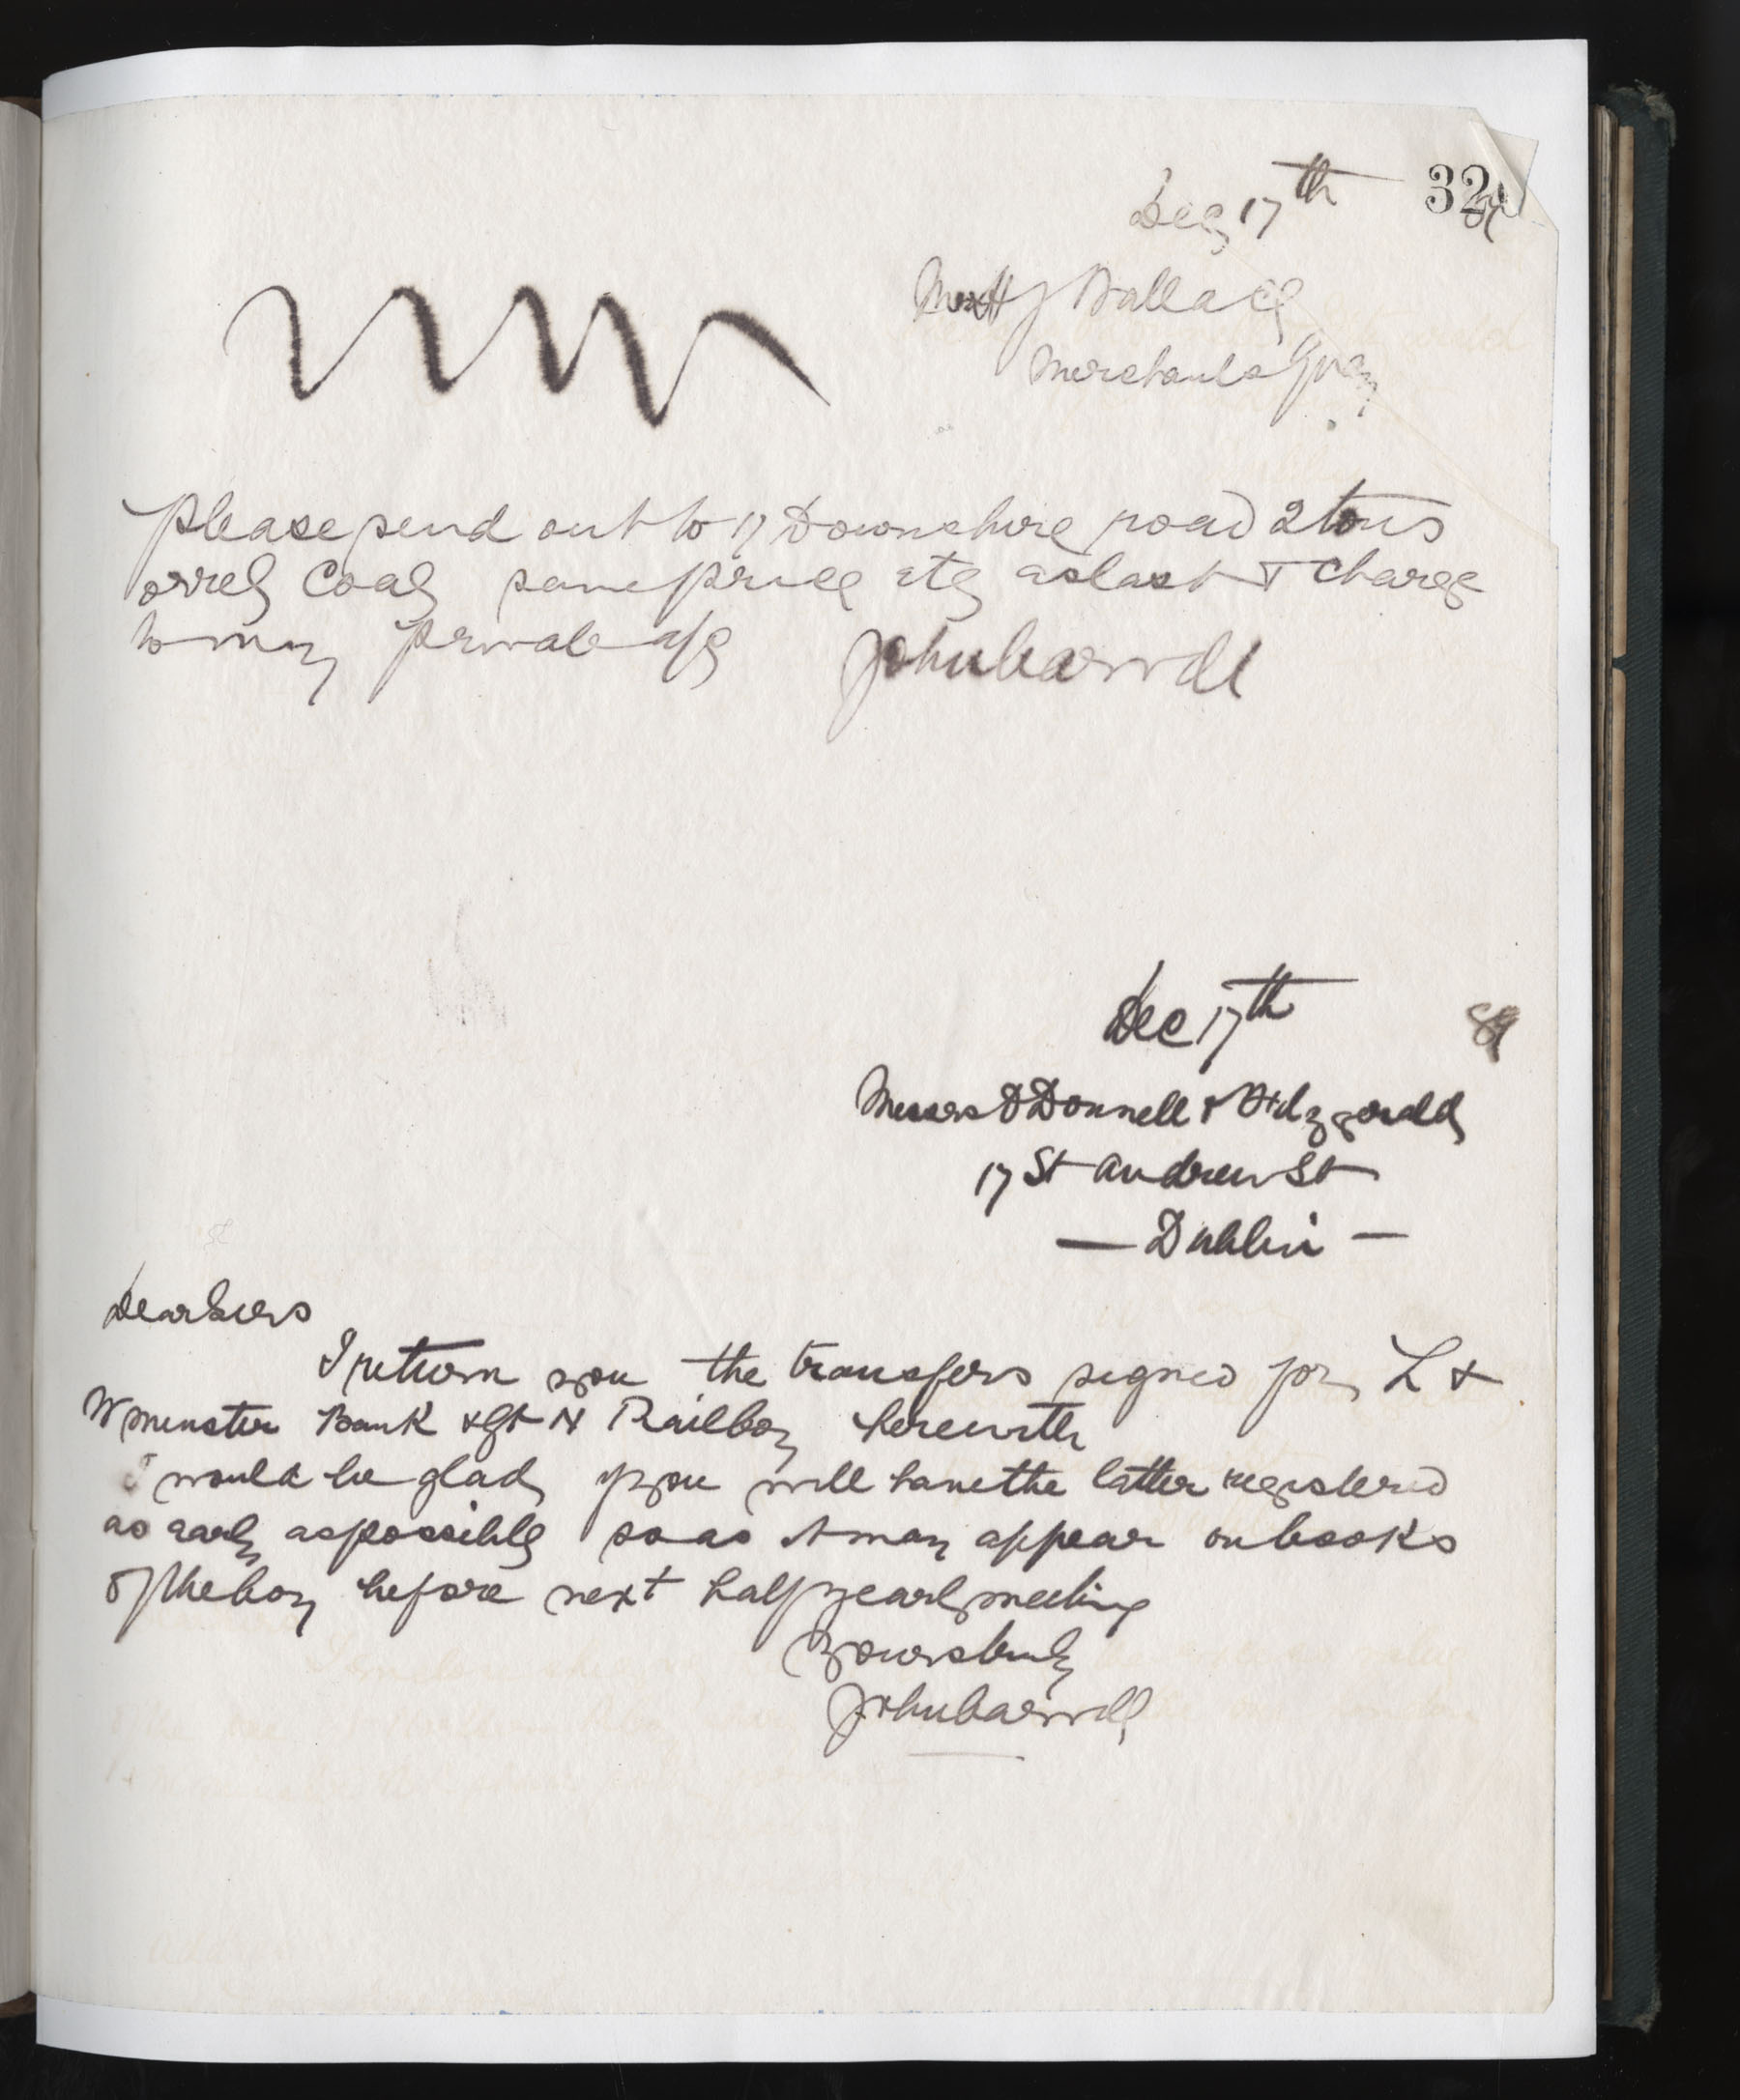 Dec 17th 32
J Wallace
Merchants Quay
Please send out to 17 Downshire road 2 tons
orrel Coal same price etc as last & charge
to my private a/c John Carvill
Dec 17th 89
Messrs O'Donnell & Fitzgerald
17 St Andrew St
— Dublin —
Dear Sirs
I return you the transfers signed for L &
Wminster Bank & Gt N Rail Coy herewith
I would be glad if you will have the latter registered
as early as possible so as it may appear on books
of the Coy before next half yearly meeting
Yours truly
John Carvill